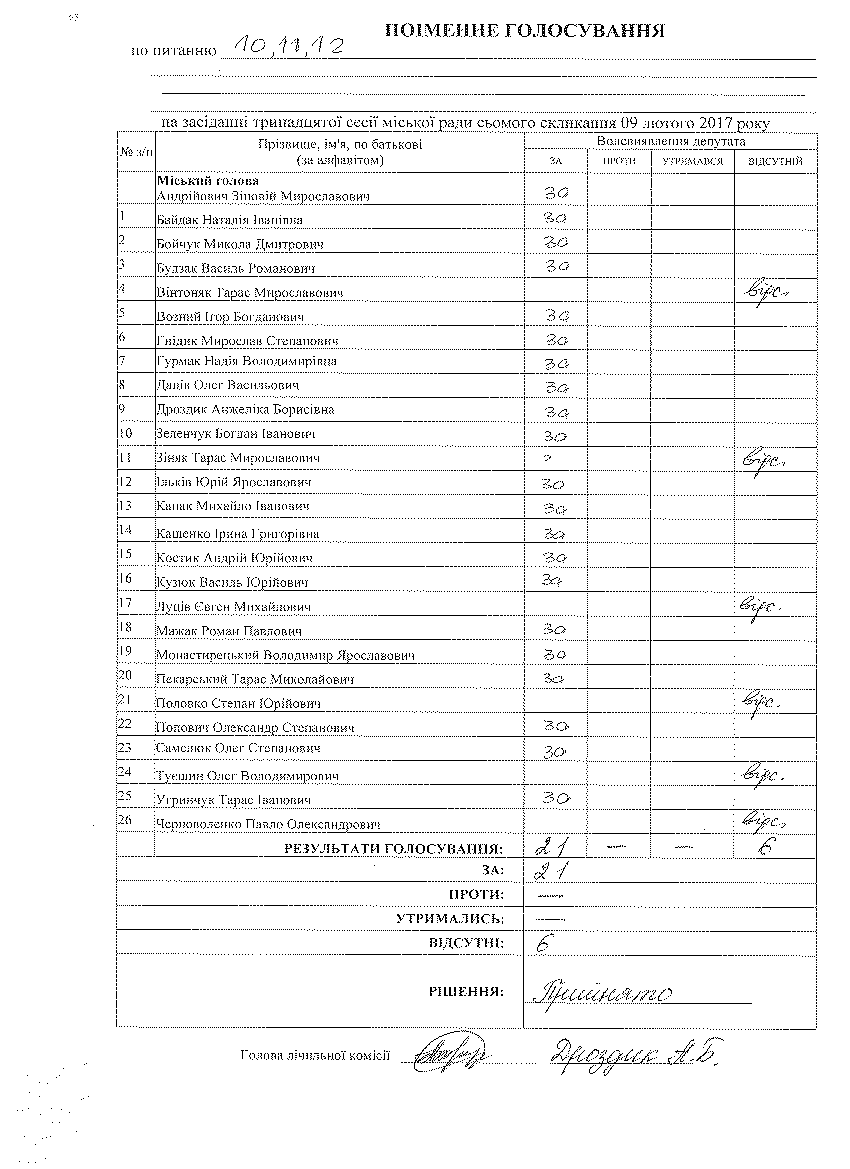 ПОІМЕННЕ ГОЛОСУВАННЯ
по питанню 10,11,12
на засіданні тринадцятої сесії міської ради сьомого скликання 09 лютого 2017 року
№ з/п Прізвище, ім'я, по батькові (за алфавітом) Волевиявлення депутата
ЗА ПРОТИ УТРИМАВСЯ ВІДСУТНІЙ
Міський голова
Андрійович Зіновій Мирославович за
1 Байдак Наталія Іванівна за
2 Бойчук Микола Дмитрович за
3 Будзак Василь Романович за
4 Вінтоняк Тарас Мирославович відс.
5 Возний Ігор Богданович за
6 Гнідик Мирослав Степанович за
7 Гурмак Надія Володимирівна за
8 Даців Олег Васильович за
9 Дроздик Анжеліка Борисівна за
10 Зеленчук Богдан Іванович за
11 Зіняк Тарас Мирославович відс.
12 Ільків Юрій Ярославович за
13 Капак Михайло Іванович за
14 Кащенко Ірина Григорівна за
15 Костик Андрій Юрійович за
16 Кузюк Василь Юрійович за
17 Луців Євген Михайлович відс.
18 Мажак Роман Павлович за
19 Монастирецький Володимир Ярославович за
20 Пекарський Тарас Миколайович за
21 Половко Степан Юрійович відс.
22 Попович Олександр Степанович за
23 Саменюк Олег Степанович за
24 Туєшин Олег Володимирович відс.
25 Угринчук Тарас Іванович за
26 Черноволенко Павло Олександрович відс.
РЕЗУЛЬТАТИ ГОЛОСУВАННЯ: 21 — — 6
ЗА: 21
ПРОТИ: —
УТРИМАЛИСЬ: —
ВІДСУТНІ: 6
РІШЕННЯ: Прийнято
Голова лічильної комісії Дроздик А.Б.